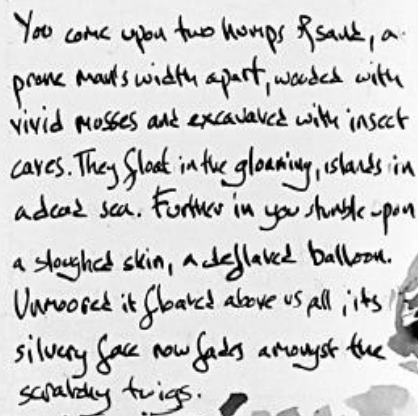 You come upon two humps of sand, a
prone man's width apart, wooded with
vivid mosses and excavated with insect
caves. They float in the gloaming, islands in
a dead sea. Further in you stumble upon
a sloughed skin, a deflated balloon.
Unmoored it floated above us all, its
silvery face now fades amongst the
scratchy twigs.